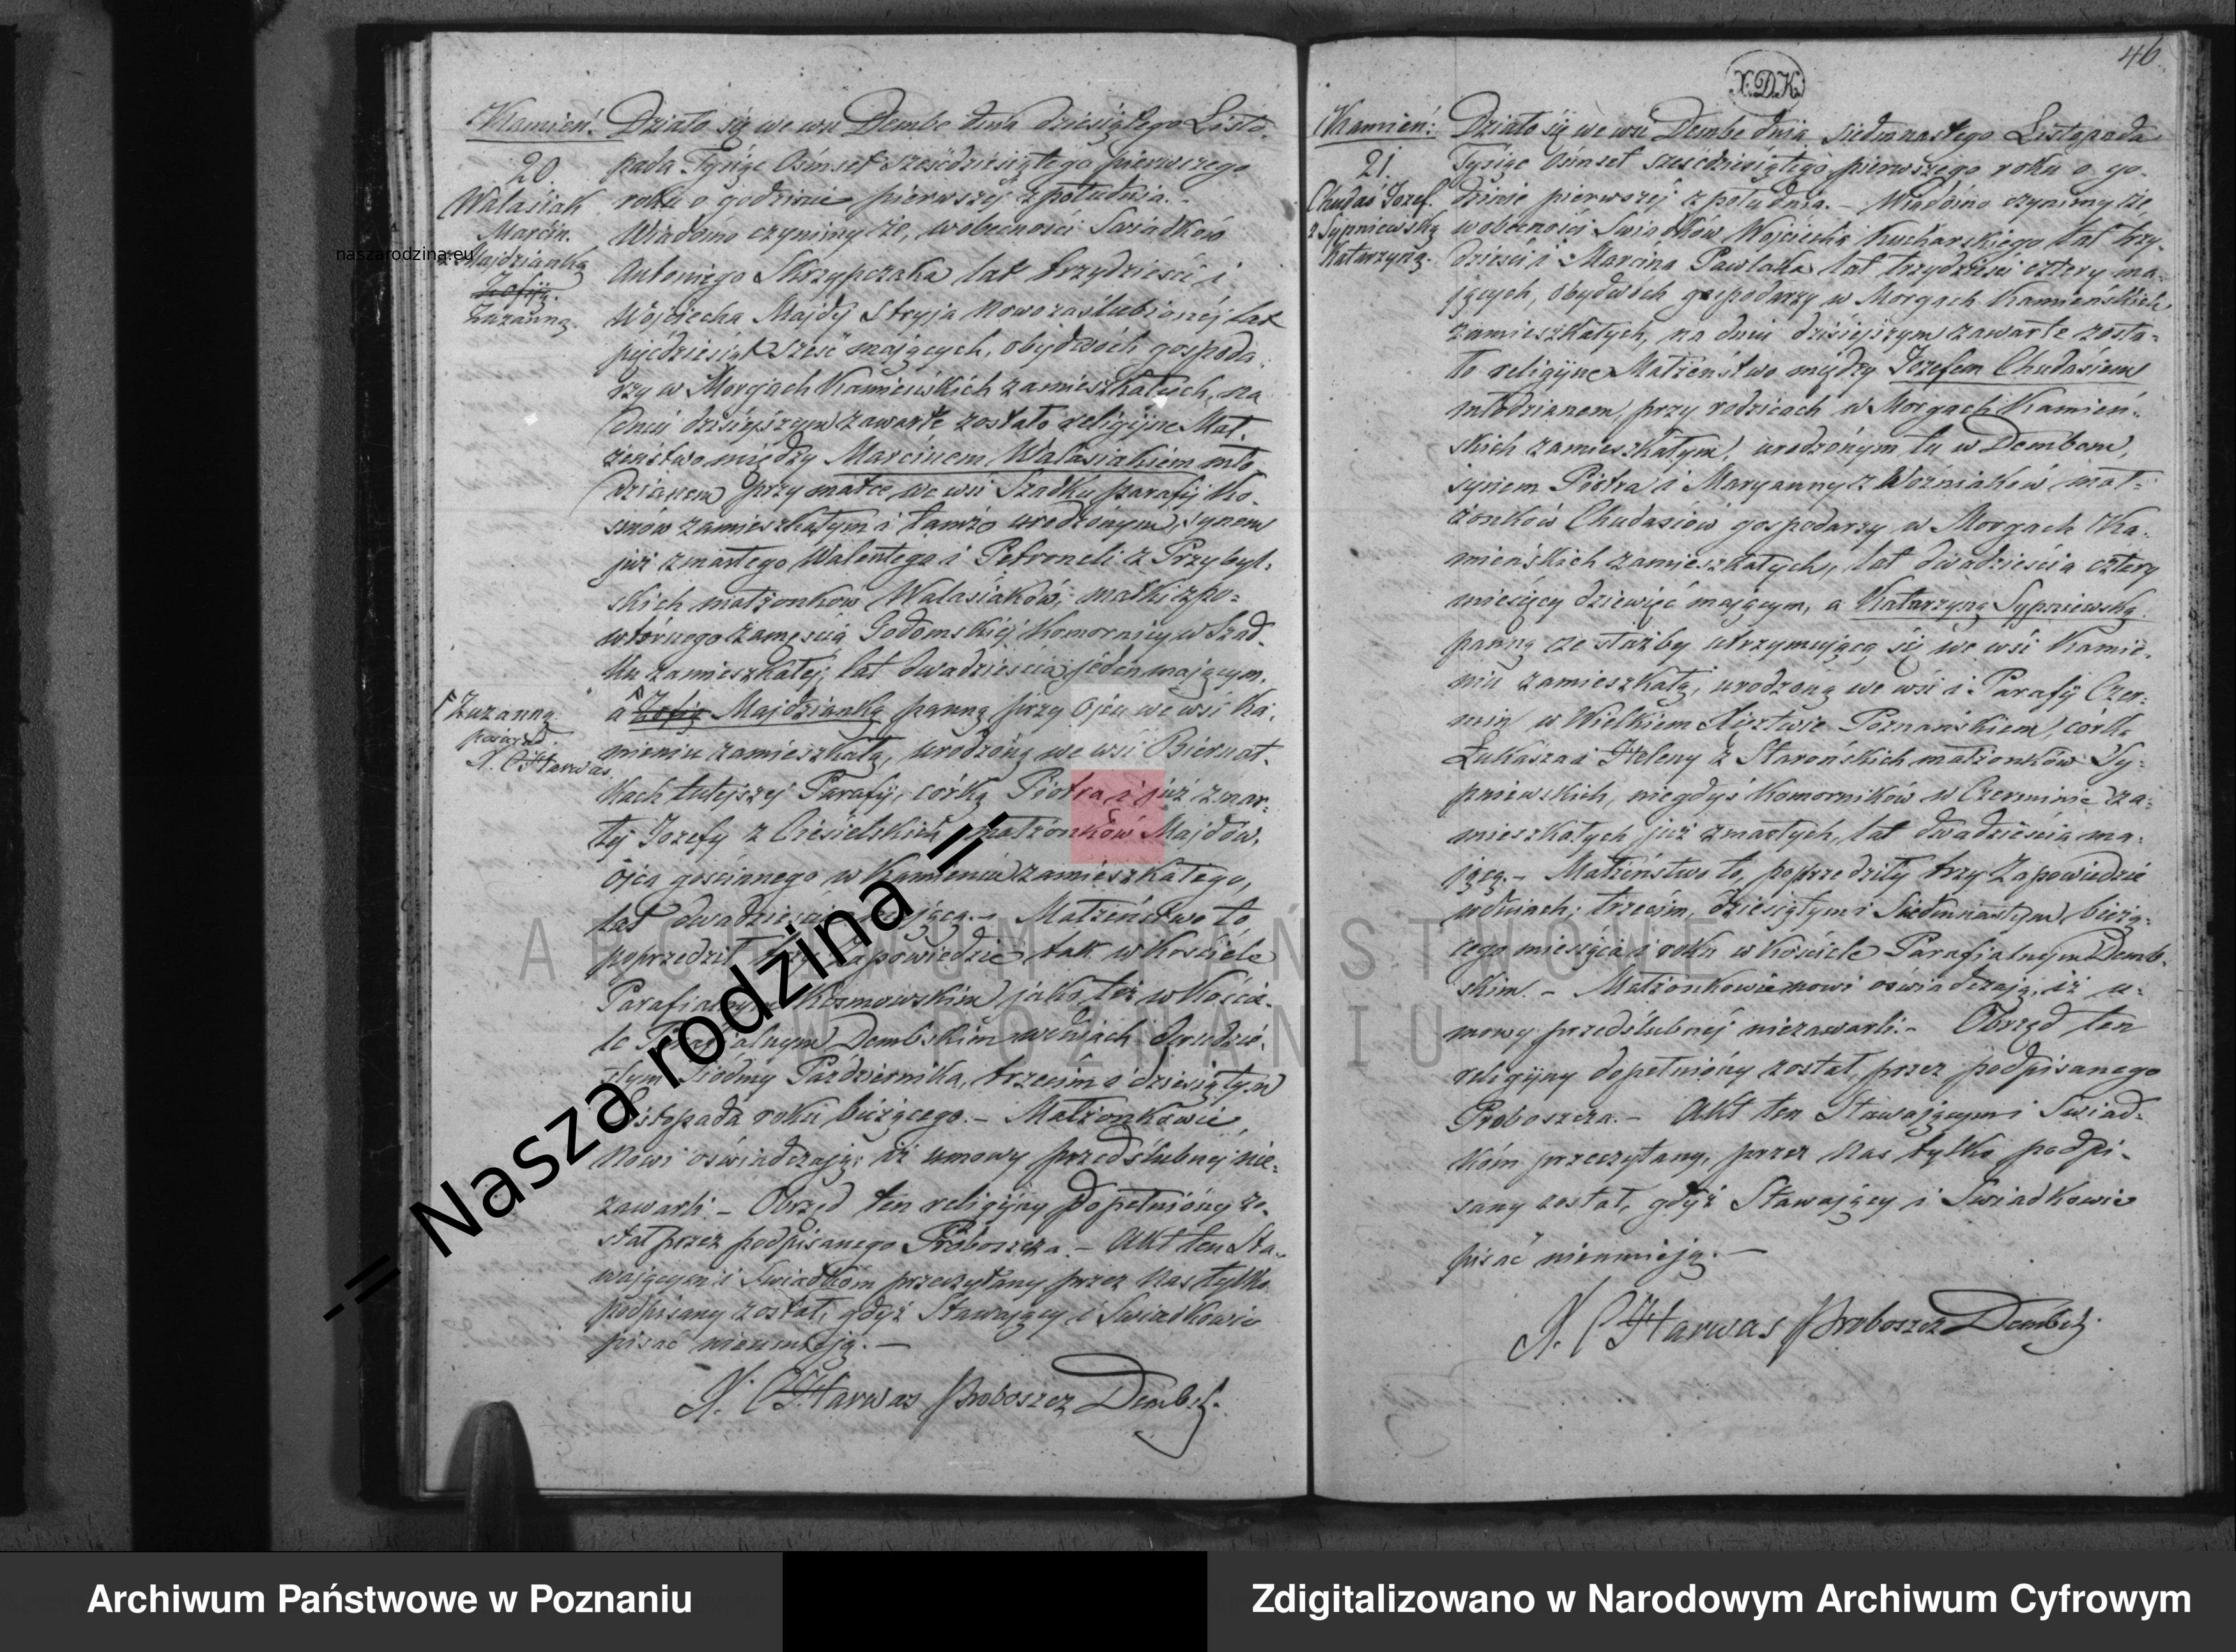 Kamień.
20.
Walasiak
Marcin.
z Majdzianką
Zofiją.
Zuzanną.
Działo się we wsi Dembe dnia dziesiątego Listo-
pada Tysiąc Ośmset sześćdziesiątego pierwszego
roku o godzinie pierwszej z południa. -
Wiadomo czynimy że, w obecności Swiadków
Antoniego Skrzypczaka lat trzydzieści i
Wojciecha Majdy Stryja nowozaślubionéj lat
pięćdziesiąt sześć mających, obydwóch gospoda-
rzy w Morgach Kamieńskich zamieszkałych, na
dniu dzisiejszym zawarte zostało religijne Mał-
żeństwo między Marcinem Walasiakiem mło-
dzianem przy matce we wsi Szadku parafij Ko-
smów zamieszkałym i tamże urodzonym, synem
już zmarłego Walentego i Petroneli z Przybyl-
skich małżonków Walasiaków, matki z po-
wtórnego zamęścia Godomskiéj Komornicy w Szad-
ku zamieszkałej, lat dwadzieścia jeden mającym,
a Zofią Majdzianką panną przy Ojcu we wsi Ka-
mieniu zamieszkałą, urodzoną we wsi Biernat-
kach tutejszej Parafij, córką Piotra i już zmar-
łéj Jozefy z Ciesielskich małżonków Majdów,
ojca gościnnego w Kamieniu zamieszkałego,
lat dwadzieścia mającą. - Małżeństwo to
poprzedziły trzy Zapowiedzie tak w Kościele
Parafialnym Kosmowskim jako też w Koście-
le Parafialnym Dembskim w dniach dwudzie-
stym siódmy Października, trzecim i dziesiątym
Listopada roku bieżącego. - Małżonkowie
nowi oświadczają, iż umowy przedślubnej nie-
zawarli. - Obrzęd ten religijny dopełniony zo-
stał przez podpisanego Proboszcza. - Akt ten Sta-
wającym i Swiadkom przeczytany przez Nas tylko
podpisany został, gdyż Stawający i Swiadkowie
pisać nieumieją. -
X. Harwas Proboszcz Dembs.
Zuzanną.
X. Harwas
46
X.D.K.
Kamień:
21.
Chudaś Jozef.
z Sypniewską
Katarzyną.
Działo się we wsi Dembe dnia siedmnastego Listopada
Tysiąc Ośmset sześćdziesiątego pierwszego roku o go-
dzinie pierwszej z południa. - Wiadomo czynimy że,
w obecności Swiadków Wojciecha Kucharskiego lat trzy-
dzieści i Marcina Pawlaka lat trzydzieści cztery ma-
jących, obydwóch gospodarzy w Morgach Kamieńskich
zamieszkałych, na dniu dzisiejszym zawarte zosta-
ło religijne Małżeństwo między Jozefem Chudasiem
młodzianem, przy rodzicach w Morgach Kamień-
skich zamieszkałym, urodzonym tu w Dembem,
synem Piotra i Maryanny z Woźniaków mał-
żonków Chudasiów gospodarzy w Morgach Ka-
mieńskich zamieszkałych, lat dwadzieścia cztery
miesięcy dziewięć mającym, a Katarzyną Sypniewską
panną ze służby utrzymującą się we wsi Kamie-
niu zamieszkałą, urodzoną we wsi i Parafij Czer-
min w Wielkiem Xięztwie Poznańskiem, córką
Łukasza i Heleny z Starońskich małżonków Sy-
pniewskich, niegdyś Komorników w Czerminie za-
mieszkałych już zmarłych, lat dwadzieścia ma-
jącą. - Małżeństwo to, poprzedziły trzy Zapowiedzie
w dniach; trzecim, dziesiątym i siedmnastym bieżą-
cego miesiąca i roku w Kościele Parafialnym Demb-
skim. - Małżonkowie nowi oświadczają, iż u-
mowy przedślubnéj niezawarli. - Obrzęd ten
religijny dopełniony został, przez podpisanego
Proboszcza. - Akt ten Stawającym i Swiad-
kom przeczytany, przez Nas tylko podpi-
sany został, gdyż Stawający i Swiadkowie
pisać nieumieją. -
X. Harwas Proboszcz Dembs.
naszarodzina.eu
-= Nasza rodzina =-
ARCHIWUM PAŃSTWOWE
W POZNANIU
Archiwum Państwowe w Poznaniu
Zdigitalizowano w Narodowym Archiwum Cyfrowym